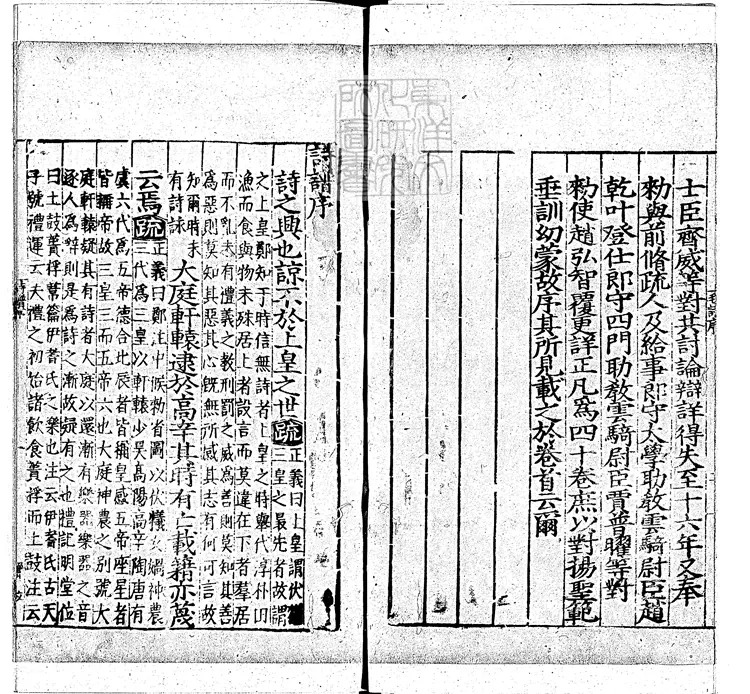 士臣齊威等對共討論辯詳得失至十六年又奉
勑與前脩疏人及給事郎守太學助教雲騎尉臣趙
乾叶登仕郎守四門助教雲騎尉臣賈普曜等對
勑使趙弘智覆更詳正凡為四十卷庶以對揚聖範
垂訓幼蒙故序其所見載之於卷首云爾
詩譜序
詩之興也諒不於上皇之世疏正義曰上皇謂伏犧
三皇之最先者故謂
之上皇鄭知于時信無詩者上皇之時舉代淳朴田
漁而食與物未殊居上者設言而莫違在下者群居
而不亂未有禮義之教刑罰之威為善則莫知其善
為惡則莫知其惡其心旣無所感其志有何可言故
知爾時未
有詩詠
大庭軒轅逮於高辛其時有亡載籍亦蔑
云焉疏正義曰鄭注中候勑省圖以伏犠女媧神農
三代為三皇以軒轅少昊高陽高辛陶唐有
虞六代為五帝德合北辰者皆稱皇感五帝座星者
皆稱帝故三皇三而五帝六也大庭神農之別號大
庭軒轅疑其有詩者大庭以還漸有樂器樂器之音
逐人為辭則是為詩之漸故疑有之也禮記明堂位
曰土鼓蕢桴葦籥伊耆氏之樂也注云伊耆氏古天
子號禮運云夫禮之初始諸飲食蕢桴而土鼓注云